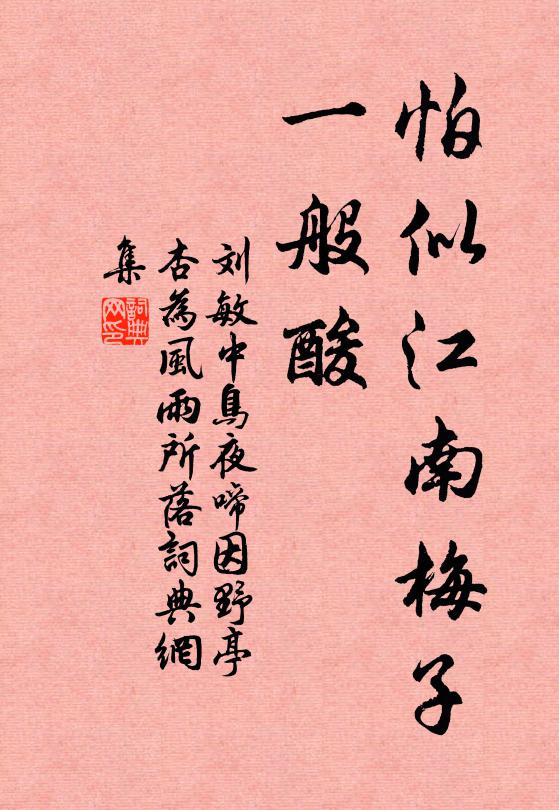 怕似江南梅子
一般酸
刘敏中鳥夜啼因野亭
杏為風雨所落詞典網
集
詞典網印